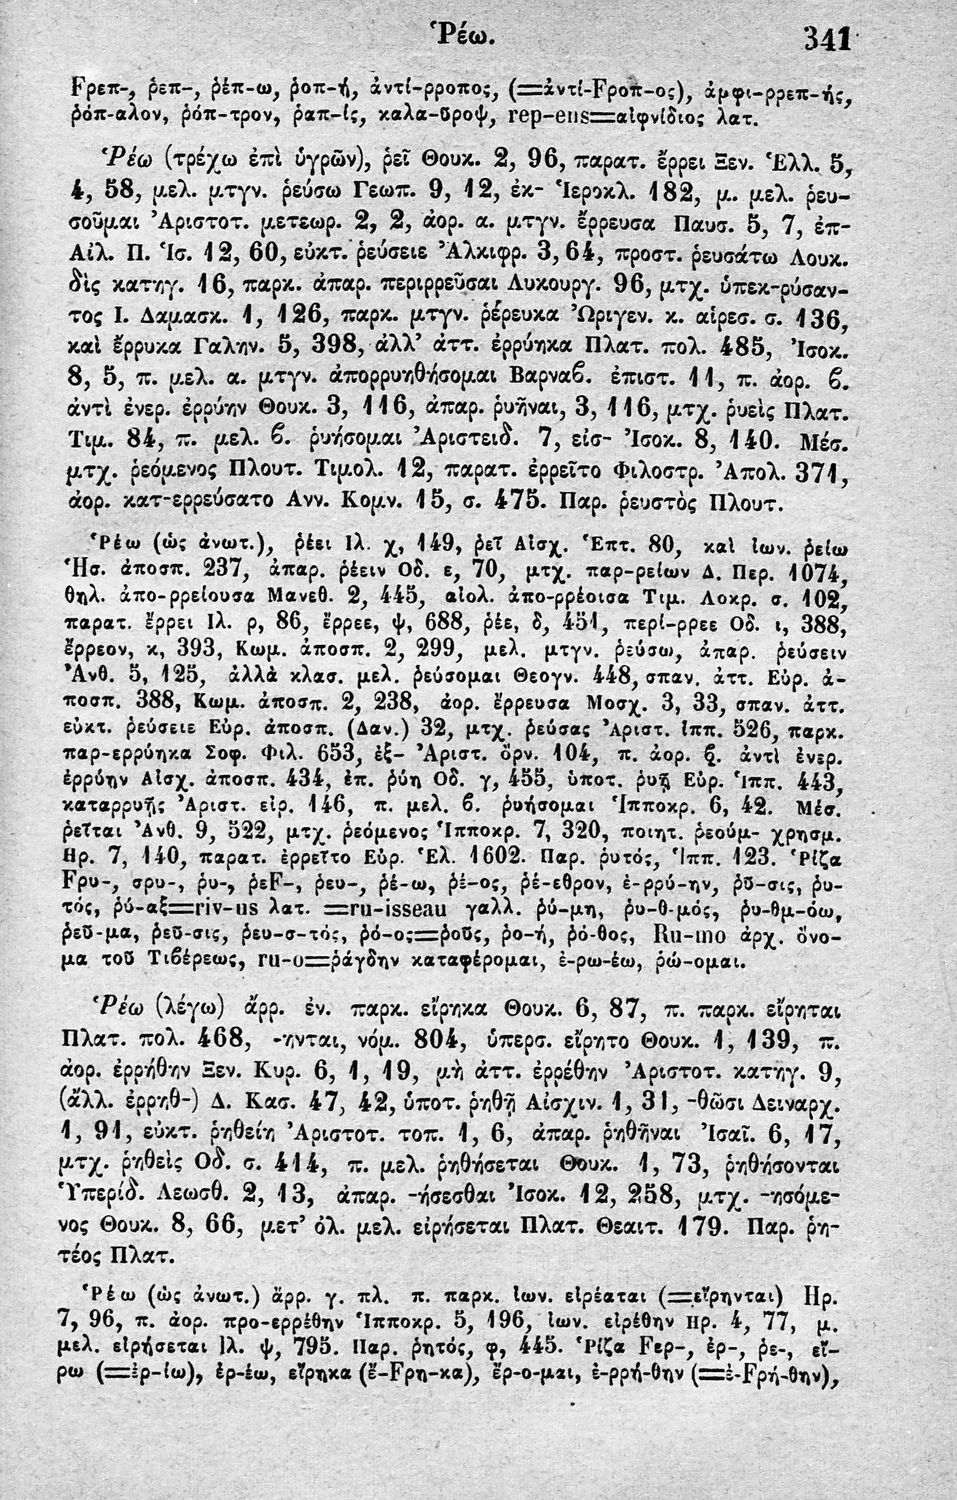 Ῥέω. 341
Fρεπ-, ῥεπ-, ῥέπ-ω, ῥοπ-ή, ἀντί-ρροπος, (=ἀντί-Fροπ-ος), ἀμφι-ρρεπ-ής,
ῥόπ-αλον, ῥόπ-τρον, ῥαπ-ίς, καλα-ῦροψ, rep-ens=αἰφνίδιος λατ.
Ῥέω (τρέχω ἐπὶ ὑγρῶν), ῥεῖ Θουκ. 2, 96, παρατ. ἔρρει Ξεν. Ἑλλ. 5,
4, 58, μελ. μτγν. ῥεύσω Γεωπ. 9, 12, ἐκ- Ἱεροκλ. 182, μ. μελ. ῥευ-
σοῦμαι Ἀριστοτ. μετεωρ. 2, 2, ἀορ. α. μτγν. ἔρρευσα Παυσ. 5, 7, ἐπ-
Αἰλ. Π. Ἱσ. 12, 60, εὐκτ. ῥεύσειε Ἀλκιφρ. 3, 64, προστ. ῥευσάτω Λουκ.
δὶς κατηγ. 16, παρκ. ἀπαρ. περιρρεῦσαι Λυκουργ. 96, μτχ. ὑπεκ-ρύσαν-
τος Ι. Δαμασκ. 1, 126, παρκ. μτγν. ῥέρευκα Ὠριγεν. κ. αἱρεσ. σ. 136,
καὶ ἔρρυκα Γαλην. 5, 398, ἀλλ' ἀττ. ἐρρύηκα Πλατ. πολ. 485, Ἰσοκ.
8, 5, π. μελ. α. μτγν. ἀπορρυηθήσομαι Βαρναβ. ἐπιστ. 11, π. ἀορ. β.
ἀντὶ ἐνερ. ἐρρύην Θουκ. 3, 116, ἀπαρ. ῥυῆναι, 3, 116, μτχ. ῥυεὶς Πλατ.
Τιμ. 84, π. μελ. β. ῥυήσομαι Ἀριστειδ. 7, εἰσ- Ἰσοκ. 8, 140. Μέσ.
μτχ. ῥεόμενος Πλουτ. Τιμολ. 12, παρατ. ἐρρεῖτο Φιλοστρ. Ἀπολ. 371,
ἀορ. κατ-ερρεύσατο Ανν. Κομν. 15, σ. 475. Παρ. ῥευστὸς Πλουτ.
Ῥέω (ὡς ἀνωτ.), ῥέει Ιλ. χ, 149, ῥεῖ Αἰσχ. Ἑπτ. 80, καὶ ἰων. ῥείω
Ἡσ. ἀποσπ. 237, ἀπαρ. ῥέειν Οδ. ε, 70, μτχ. παρ-ρείων Δ. Περ. 1074,
θηλ. ἀπο-ρρείουσα Μανεθ. 2, 445, αἰολ. ἀπο-ρρέοισα Τιμ. Λοκρ. σ. 102,
παρατ. ἔρρει Ιλ. ρ, 86, ἔρρεε, ψ, 688, ῥέε, δ, 451, περί-ρρεε Οδ. ι, 388,
ἔρρεον, κ, 393, Κωμ. ἀποσπ. 2, 299, μελ. μτγν. ῥεύσω, ἀπαρ. ῥεύσειν
Ἀνθ. 5, 125, ἀλλὰ κλασ. μελ. ῥεύσομαι Θεογν. 448, σπαν. ἀττ. Εὐρ. ἀ-
ποσπ. 388, Κωμ. ἀποσπ. 2, 238, ἀορ. ἔρρευσα Μοσχ. 3, 33, σπαν. ἀττ.
εὐκτ. ῥεύσειε Εὐρ. ἀποσπ. (Δαν.) 32, μτχ. ῥεύσας Ἀριστ. ἱππ. 526, παρκ.
παρ-ερρύηκα Σοφ. Φιλ. 653, ἐξ- Ἀριστ. ὄρν. 104, π. ἀορ. β. ἀντὶ ἐνερ.
ἐρρύην Αἰσχ. ἀποσπ. 434, ἐπ. ῥύη Οδ. γ, 455, ὑποτ. ῥυῇ Εὐρ. Ἱππ. 443,
καταρρυῇς Ἀριστ. εἰρ. 146, π. μελ. β. ῥυήσομαι Ἱπποκρ. 6, 42. Μέσ.
ῥεῖται Ἀνθ. 9, 522, μτχ. ῥεόμενος Ἱπποκρ. 7, 320, ποιητ. ῥεούμ- χρησμ.
Ηρ. 7, 140, παρατ. ἐρρεῖτο Εὐρ. Ἑλ. 1602. Παρ. ῥυτός, Ἱππ. 123. Ῥίζα
Fρυ-, σρυ-, ῥυ-, ῥεF-, ῥευ-, ῥέ-ω, ῥέ-ος, ῥέ-εθρον, ἐ-ρρύ-ην, ῥῦ-σις, ῥυ-
τός, ῥύ-αξ=riv-us λατ. =ru-isseau γαλλ. ῥύ-μη, ῥυ-θ-μός, ῥυ-θμ-όω,
ῥεῦ-μα, ῥεῦ-σις, ῥευ-σ-τός, ῥό-ος=ῥοῦς, ῥο-ή, ῥό-θος, Ru-mo ἀρχ. ὄνο-
μα τοῦ Τιβέρεως, ru-o=ῥάγδην καταφέρομαι, ἐ-ρω-έω, ῥώ-ομαι.
Ῥέω (λέγω) ἄρρ. ἐν. παρκ. εἴρηκα Θουκ. 6, 87, π. παρκ. εἴρηται
Πλατ. πολ. 468, -ηνται, νόμ. 804, ὑπερσ. εἴρητο Θουκ. 1, 139, π.
ἀορ. ἐρρήθην Ξεν. Κυρ. 6, 1, 19, μὴ ἀττ. ἐρρέθην Ἀριστοτ. κατηγ. 9,
(ἄλλ. ἐρρηθ-) Δ. Κασ. 47, 42, ὑποτ. ῥηθῇ Αἰσχιν. 1, 31, -θῶσι Δειναρχ.
1, 91, εὐκτ. ῥηθείη Ἀριστοτ. τοπ. 1, 6, ἀπαρ. ῥηθῆναι Ἰσαῖ. 6, 17,
μτχ. ῥηθεὶς Οδ. σ. 414, π. μελ. ῥηθήσεται Θουκ. 1, 73, ῥηθήσονται
Ὑπερίδ. Λεωσθ. 2, 13, ἀπαρ. -ήσεσθαι Ἰσοκ. 12, 258, μτχ. -ησόμε-
νος Θουκ. 8, 66, μετ' ὀλ. μελ. εἰρήσεται Πλατ. Θεαιτ. 179. Παρ. ῥη-
τέος Πλατ.
Ῥέω (ὡς ἀνωτ.) ἄρρ. γ. πλ. π. παρκ. ἰων. εἰρέαται (=εἴρηνται) Ηρ.
7, 96, π. ἀορ. προ-ερρέθην Ἱπποκρ. 5, 196, ἰων. εἰρέθην Ηρ. 4, 77, μ.
μελ. εἰρήσεται Ιλ. ψ, 795. Παρ. ῥητός, φ, 445. Ῥίζα Fερ-, ἐρ-, ῥε-, εἴ-
ρω (=ἐρ-ίω), ἐρ-έω, εἴρηκα (ἔ-Fρη-κα), ἔρ-ο-μαι, ἐ-ρρή-θην (=ἐ-Fρή-θην),